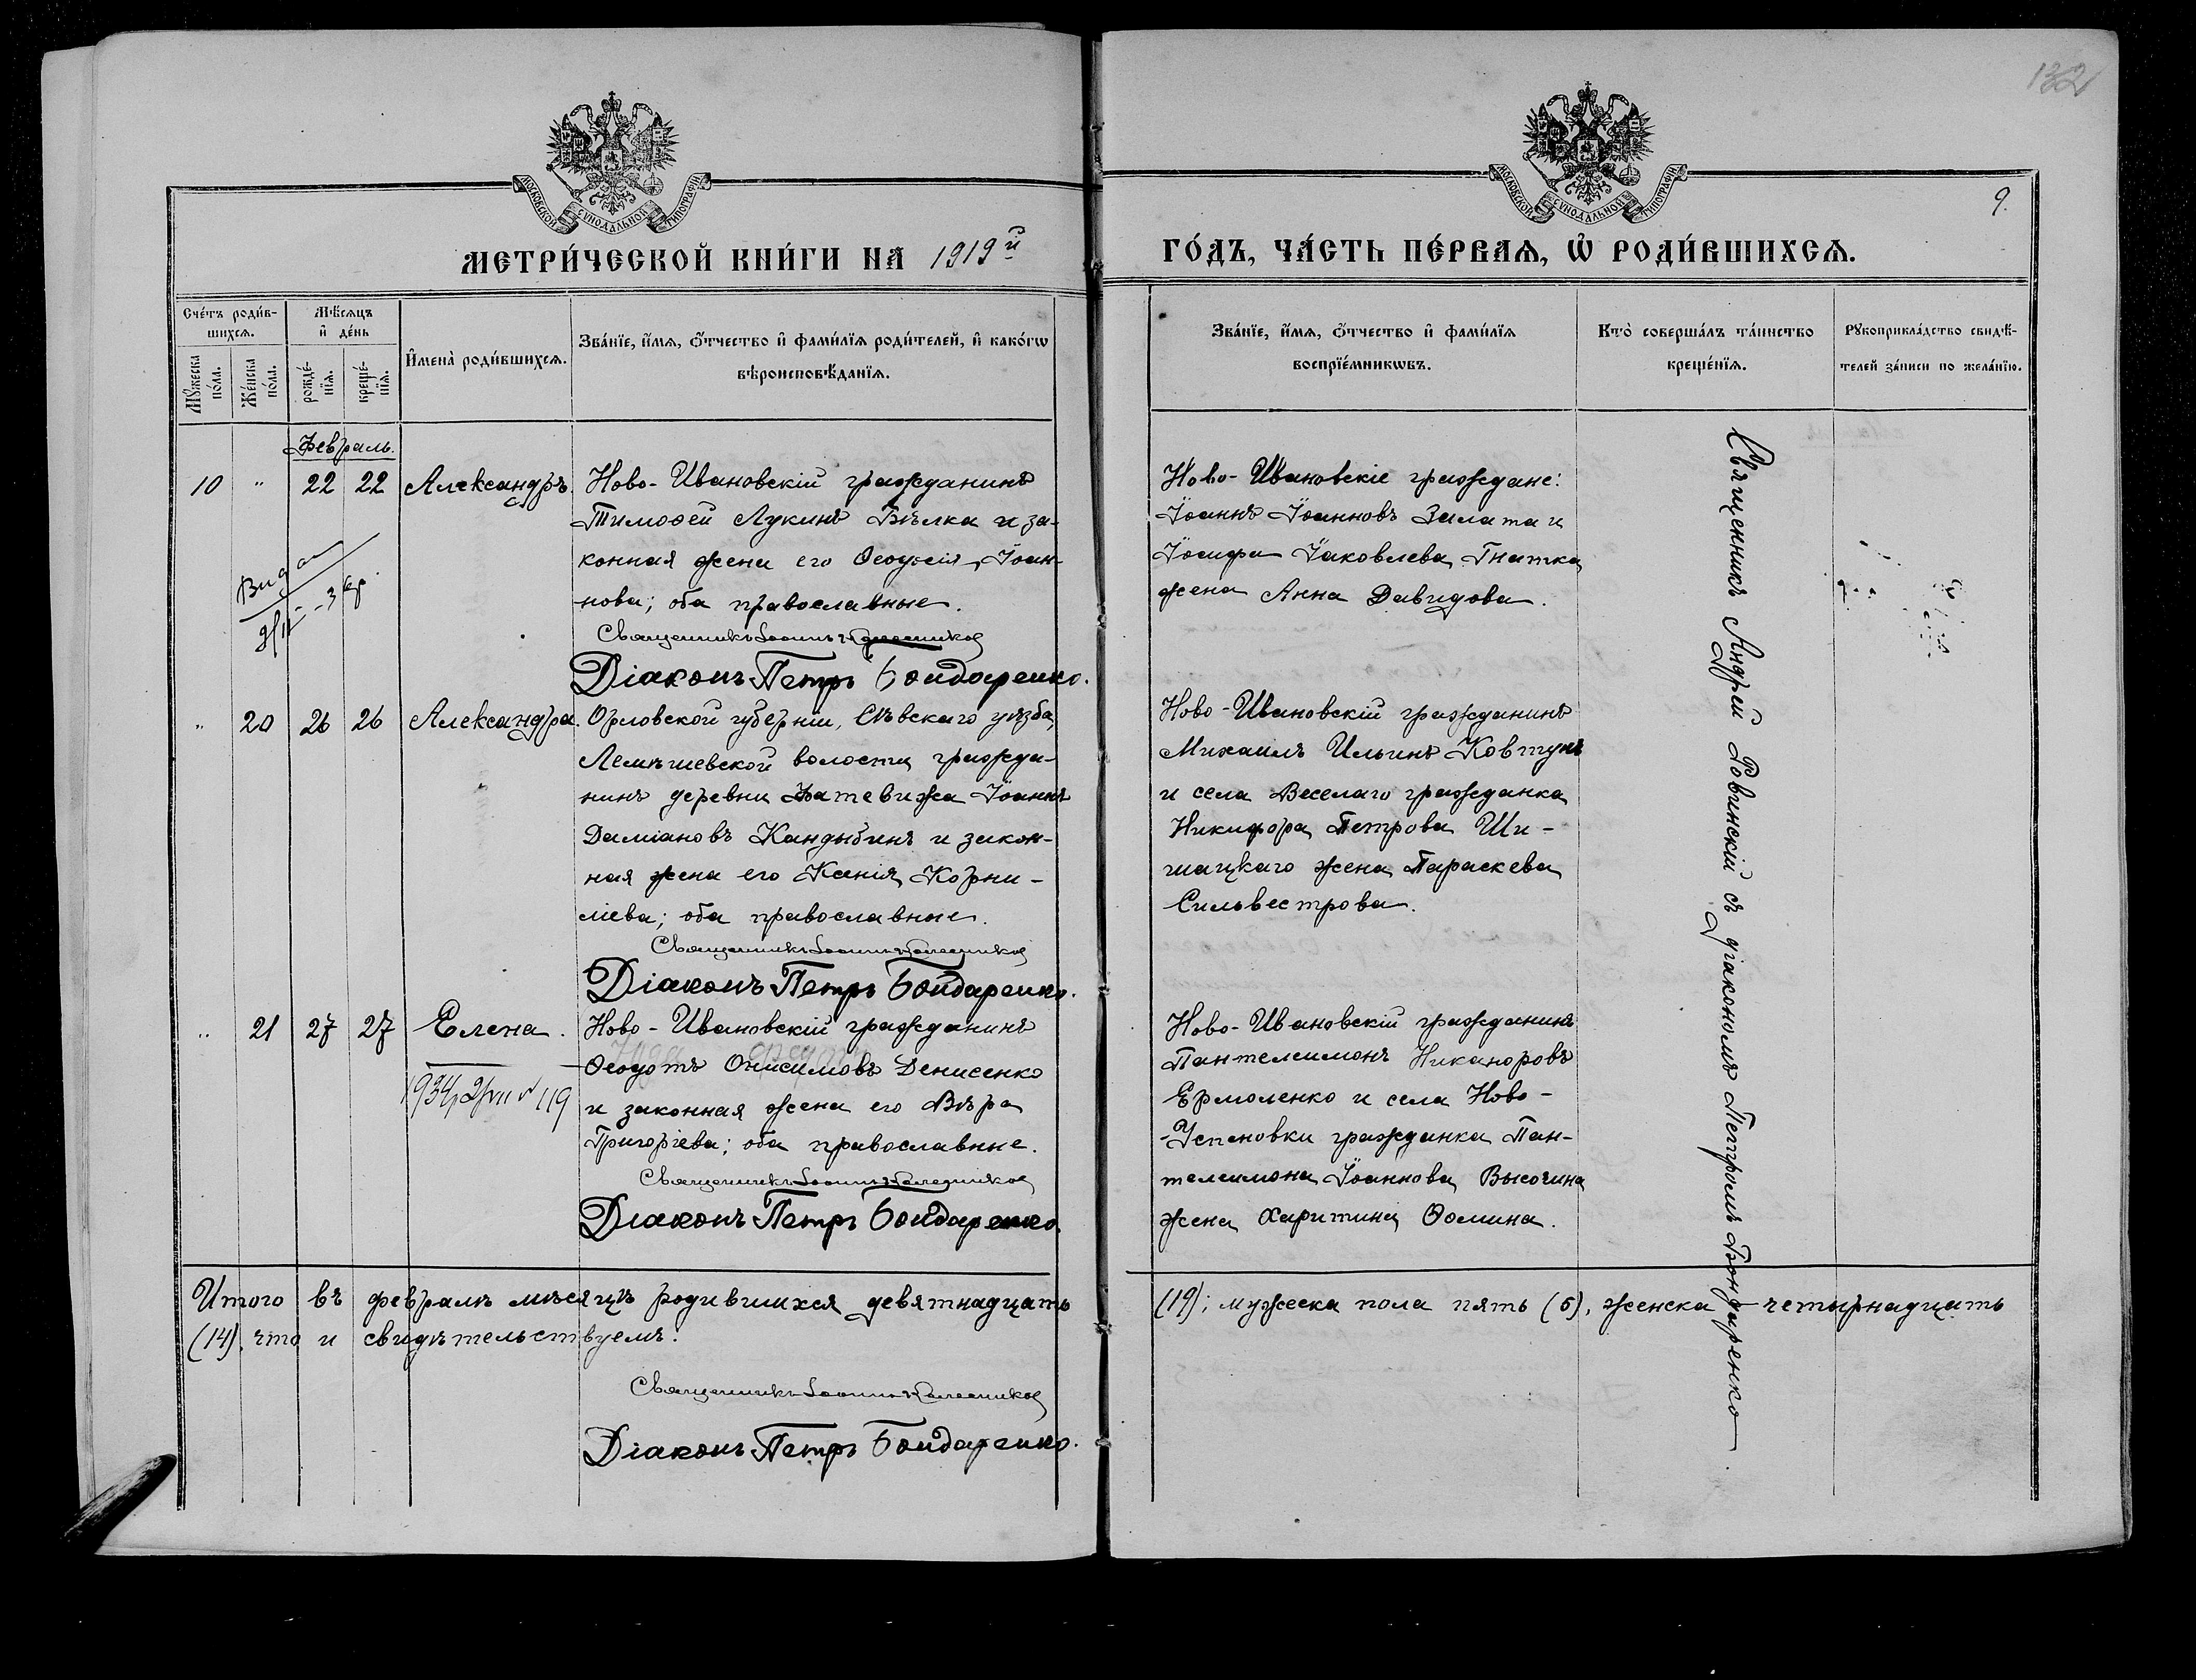 132
9.
МОСКОВСКОЙ СУНОДАЛЬНОЙ ТИПОГРАФІИ
МОСКОВСКОЙ СУНОДАЛЬНОЙ ТИПОГРАФІИ
МЕТРИ́ЧЕСКОЙ КНИ́ГИ НА 1919й
ГО́ДЪ, ЧА́СТЬ ПЕ́РВАѦ, Ѡ РОДИ́ВШИХСѦ.
Сче́тъ роди́в-
шихсѧ.
Мѣ́сѧцъ
и҆ де́нь
Мꙋ́жеска
по́ла.
Же́нска
по́ла.
рожде́-
нїѧ.
креще́-
нїѧ.
И҆мена̀ роди́вшихсѧ.
Зва́нїе, и҆́мѧ, ѻ҆́тчество и҆ фами́лїѧ роди́телей, и҆ како́гѡ
вѣроисповѣ́данїѧ.
Зва́нїе, и҆́мѧ, ѻ҆́тчество и҆ фами́лїѧ
воспрїе́мникѡвъ.
Кто̀ соверша́лъ та́инство
креще́нїѧ.
Рꙋкоприкла́дство свидѣ́-
телей за́писи по жела́нїю.
Февраль.
10 " 22 22 Александръ. Ново-Ивановскій гражданинъ
Тимоѳей Лукинъ Бѣлка и за-
конная жена его Ѳеодосія Іоан-
нова; оба православные.
Священникъ Іоаннъ Колесников
Діаконъ Петръ Бондаренко.
Ново-Ивановскіе граждане:
Іоаннъ Іоанновъ Залата и
Іосифа Іаковлева Гнатка
жена Анна Давидова.
" 20 26 26 Александра. Орловской губерніи, Сѣвскаго уѣзда,
Лемешевской волости гражда-
нинъ деревни Фатевижа Іоаннъ
Даміановъ Кандыбинъ и закон-
ная жена его Ксенія Корни-
ліева; оба православные.
Священникъ Іоаннъ Колесников
Діаконъ Петръ Бондаренко.
Ново-Ивановскій гражданинъ
Михаилъ Ильинъ Ковтунъ
и села Веселаго гражданка
Никифора Петрова Ши-
шацкаго жена Параскева
Сильвестрова.
" 21 27 27 Елена. Ново-Ивановскій гражданинъ
Ѳеодотъ Онисимовъ Денисенко
и законная жена его Вѣра
Григоріева; оба православные.
Священникъ Іоаннъ Колесников
Діаконъ Петръ Бондаренко.
Ново-Ивановскій гражданинъ
Пантелеимонъ Никаноровъ
Ермоленко и села Ново-
-Успеновки гражданка Пан-
телеимона Іоаннова Высочина
жена Харитина Ѳомина.
Священникъ Андрей Ровинскій съ діакономъ Петромъ Бондаренко
Итого въ февралѣ мѣсяцѣ родившихся девятнадцать
(19); мужеска пола пять (5), женска — четырнадцать
(14), что и свидѣтельствуемъ.
Священникъ Іоаннъ Колесников
Діаконъ Петръ Бондаренко.